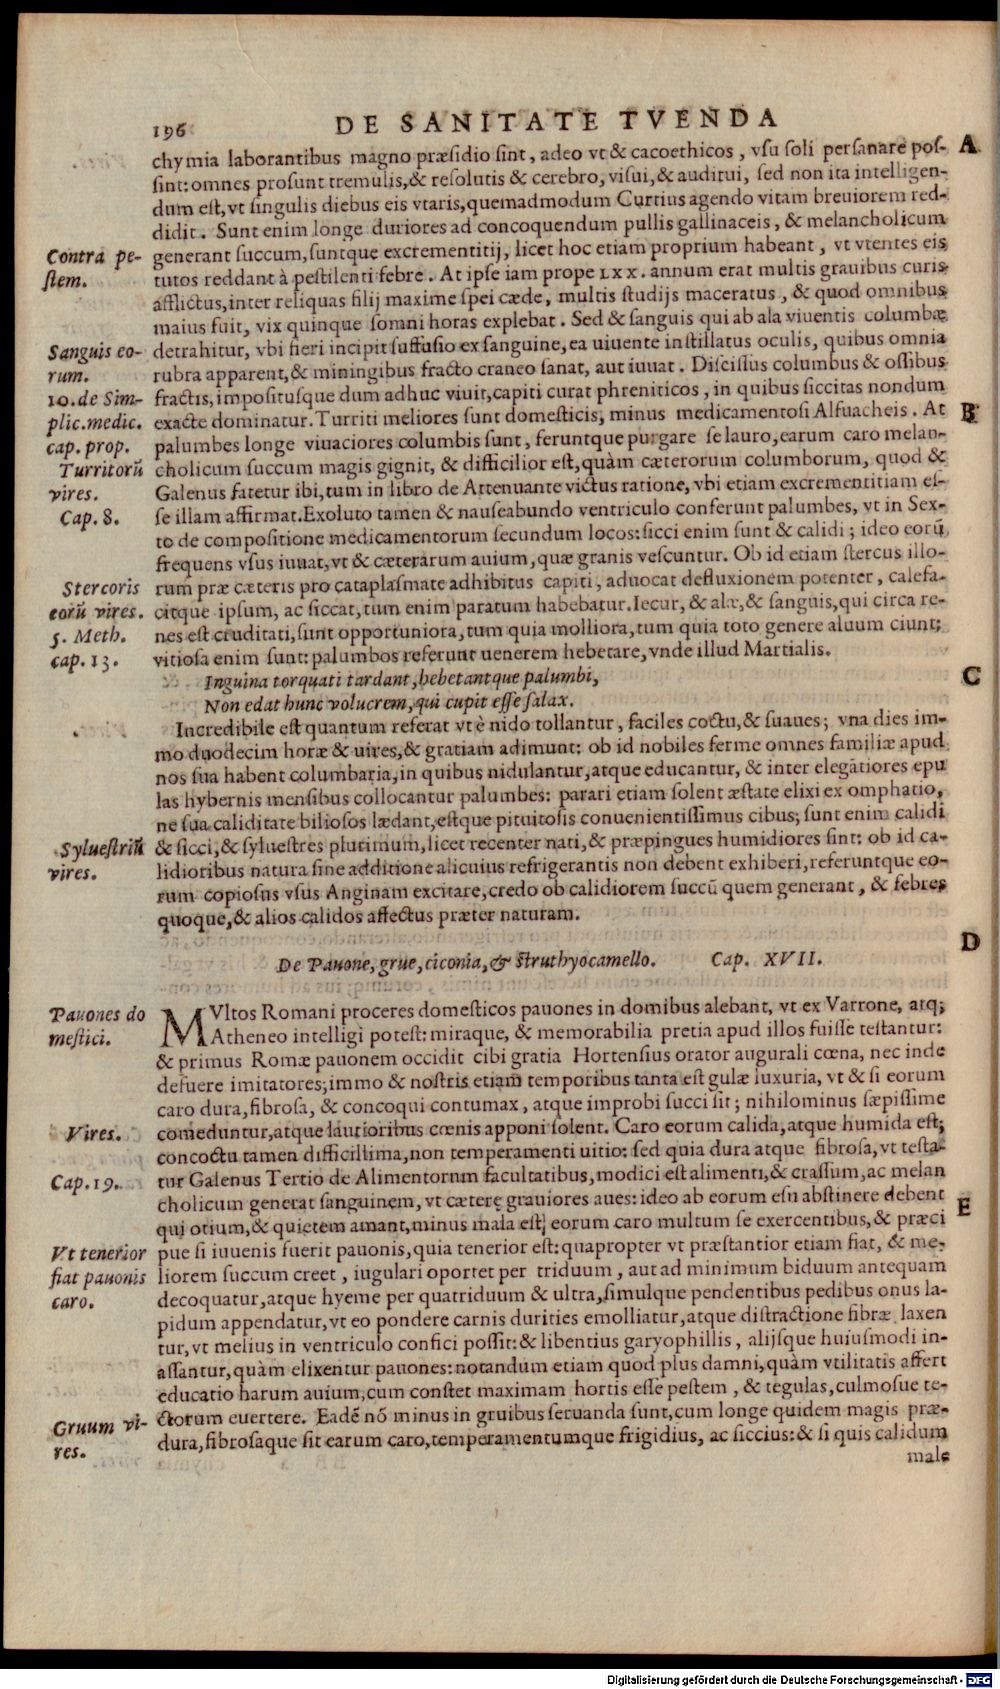 196 DE SANITATE TVENDA
chymia laborantibus magno præsidio sint, adeo vt & cacoethicos, vsu soli persanare pos- A
sint: omnes prosunt tremulis, & resolutis & cerebro, visui, & auditui, sed non ita intelligen-
dum est, vt singulis diebus eis vtaris, quemadmodum Curtius agendo vitam breuiorem red-
didit. Sunt enim longe duriores ad concoquendum pullis gallinaceis, & melancholicum
Contra pe- generant succum, suntque excrementitij, licet hoc etiam proprium habeant, vt vtentes eis
stem. tutos reddant à pestilenti febre. At ipse iam prope LXX. annum erat multis grauibus curis
afflictus, inter reliquas filij maxime spei cæde, multis studijs maceratus, & quod omnibus
maius fuit, vix quinque somni horas explebat. Sed & sanguis qui ab ala viuentis columbæ
Sanguis eo- detrahitur, vbi fieri incipit suffusio ex sanguine, ea uiuente instillatus oculis, quibus omnia
rum. rubra apparent, & miningibus fracto craneo sanat, aut iuuat. Discissus columbus & ossibus
10. de Sim- fractis, impositusque dum adhuc viuit, capiti curat phreniticos, in quibus siccitas nondum
plic. medic. exacte dominatur. Turriti meliores sunt domesticis, minus medicamentosi Alfuacheis. At B
cap. prop. palumbes longe viuaciores columbis sunt, feruntque purgare se lauro, earum caro melan-
Turritorũ cholicum succum magis gignit, & difficilior est, quàm cæterorum columborum, quod &
vires. Galenus fatetur ibi, tum in libro de Attenuante victus ratione, vbi etiam excrementitiam es-
Cap. 8. se illam affirmat. Exoluto tamen & nauseabundo ventriculo conferunt palumbes, vt in Sex-
to de compositione medicamentorum secundum locos: sicci enim sunt & calidi; ideo eorũ
frequens vsus iuuat, vt & cæterarum auium, quæ granis vescuntur. Ob id etiam stercus illo-
Stercoris rum præ cæteris pro cataplasmate adhibitus capiti, aduocat defluxionem potenter, calefa-
eorũ vires. citque ipsum, ac siccat, tum enim paratum habebatur. Iecur, & alæ, & sanguis, qui circa re-
5. Meth. nes est cruditati, sunt opportuniora, tum quia molliora, tum quia toto genere aluum ciunt;
cap. 13. vitiosa enim sunt: palumbos referunt uenerem hebetare, vnde illud Martialis.
Inguina torquati tardant, hebetantque palumbi, C
Non edat hunc volucrem, qui cupit esse salax.
Incredibile est quantum referat vt è nido tollantur, faciles coctu, & suaues; vna dies im-
mo duodecim horæ & uires, & gratiam adimunt: ob id nobiles ferme omnes familiæ apud
nos sua habent columbaria, in quibus nidulantur, atque educantur, & inter elegãtiores epu
las hybernis mensibus collocantur palumbes: parari etiam solent æstate elixi ex omphatio,
ne sua caliditate biliosos lædant, estque pituitosis conuenientissimus cibus; sunt enim calidi
Syluestriũ & sicci, & syluestres plurimum, licet recenter nati, & præpingues humidiores sint: ob id ca-
vires. lidioribus natura sine additione alicuius refrigerantis non debent exhiberi, referuntque eo-
rum copiosus vsus Anginam excitare, credo ob calidiorem succũ quem generant, & febres
quoque, & alios calidos affectus præter naturam.
D
De Pauone, grue, ciconia, & struthyocamello. Cap. XVII.
Pauones do MVltos Romani proceres domesticos pauones in domibus alebant, vt ex Varrone, atq;
mestici. Atheneo intelligi potest: miraque, & memorabilia pretia apud illos fuisse testantur:
& primus Romæ pauonem occidit cibi gratia Hortensius orator augurali cœna, nec inde
defuere imitatores; immo & nostris etiam temporibus tanta est gulæ luxuria, vt & si eorum
caro dura, fibrosa, & concoqui contumax, atque improbi succi sit; nihilominus sæpissime
Vires. comeduntur, atque lautioribus cœnis apponi solent. Caro eorum calida, atque humida est;
concoctu tamen difficillima, non temperamenti uitio: sed quia dura atque fibrosa, vt testa-
Cap. 19. tur Galenus Tertio de Alimentorum facultatibus, modici est alimenti, & crassum, ac melan
cholicum generat sanguinem, vt cæterę grauiores aues: ideo ab eorum esu abstinere debent E
qui otium, & quietem amant, minus mala est eorum caro multum se exercentibus, & præci
Vt tenerior pue si iuuenis fuerit pauonis, quia tenerior est: quapropter vt præstantior etiam fiat, & me-
fiat pauonis liorem succum creet, iugulari oportet per triduum, aut ad minimum biduum antequam
caro. decoquatur, atque hyeme per quatriduum & ultra, simulque pendentibus pedibus onus la-
pidum appendatur, vt eo pondere carnis durities emolliatur, atque distractione fibræ laxen
tur, vt melius in ventriculo confici possit: & libentius garyophillis, alijsque huiusmodi in-
assantur, quàm elixentur pauones: notandum etiam quod plus damni, quàm vtilitatis affert
educatio harum auium, cum constet maximam hortis esse pestem, & tegulas, culmosue te-
Gruum vi- ctorum euertere. Eadẽ nõ minus in gruibus seruanda sunt, cum longe quidem magis præ-
res. dura, fibrosaque sit earum caro, temperamentumque frigidius, ac siccius: & si quis calidum
male
Digitalisierung gefördert durch die Deutsche Forschungsgemeinschaft - DFG